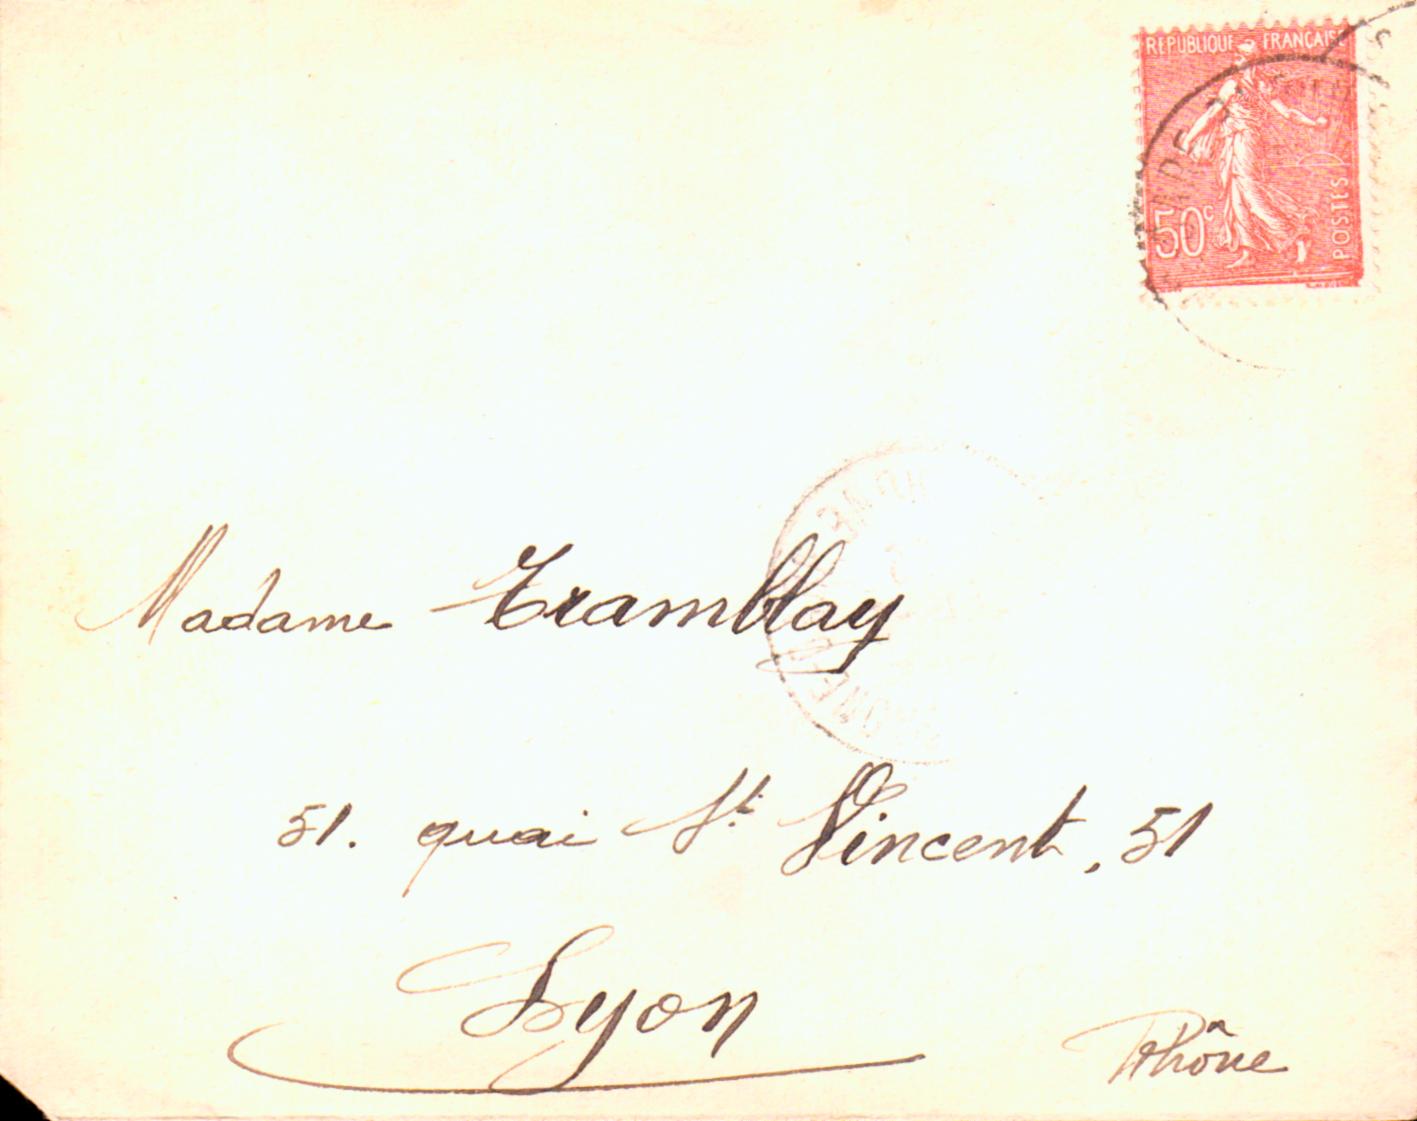 RÉPUBLIQUE FRANÇAISE
50c
POSTES
Madame Tramblay
51. quai St. Vincent, 51
Lyon
Rhône